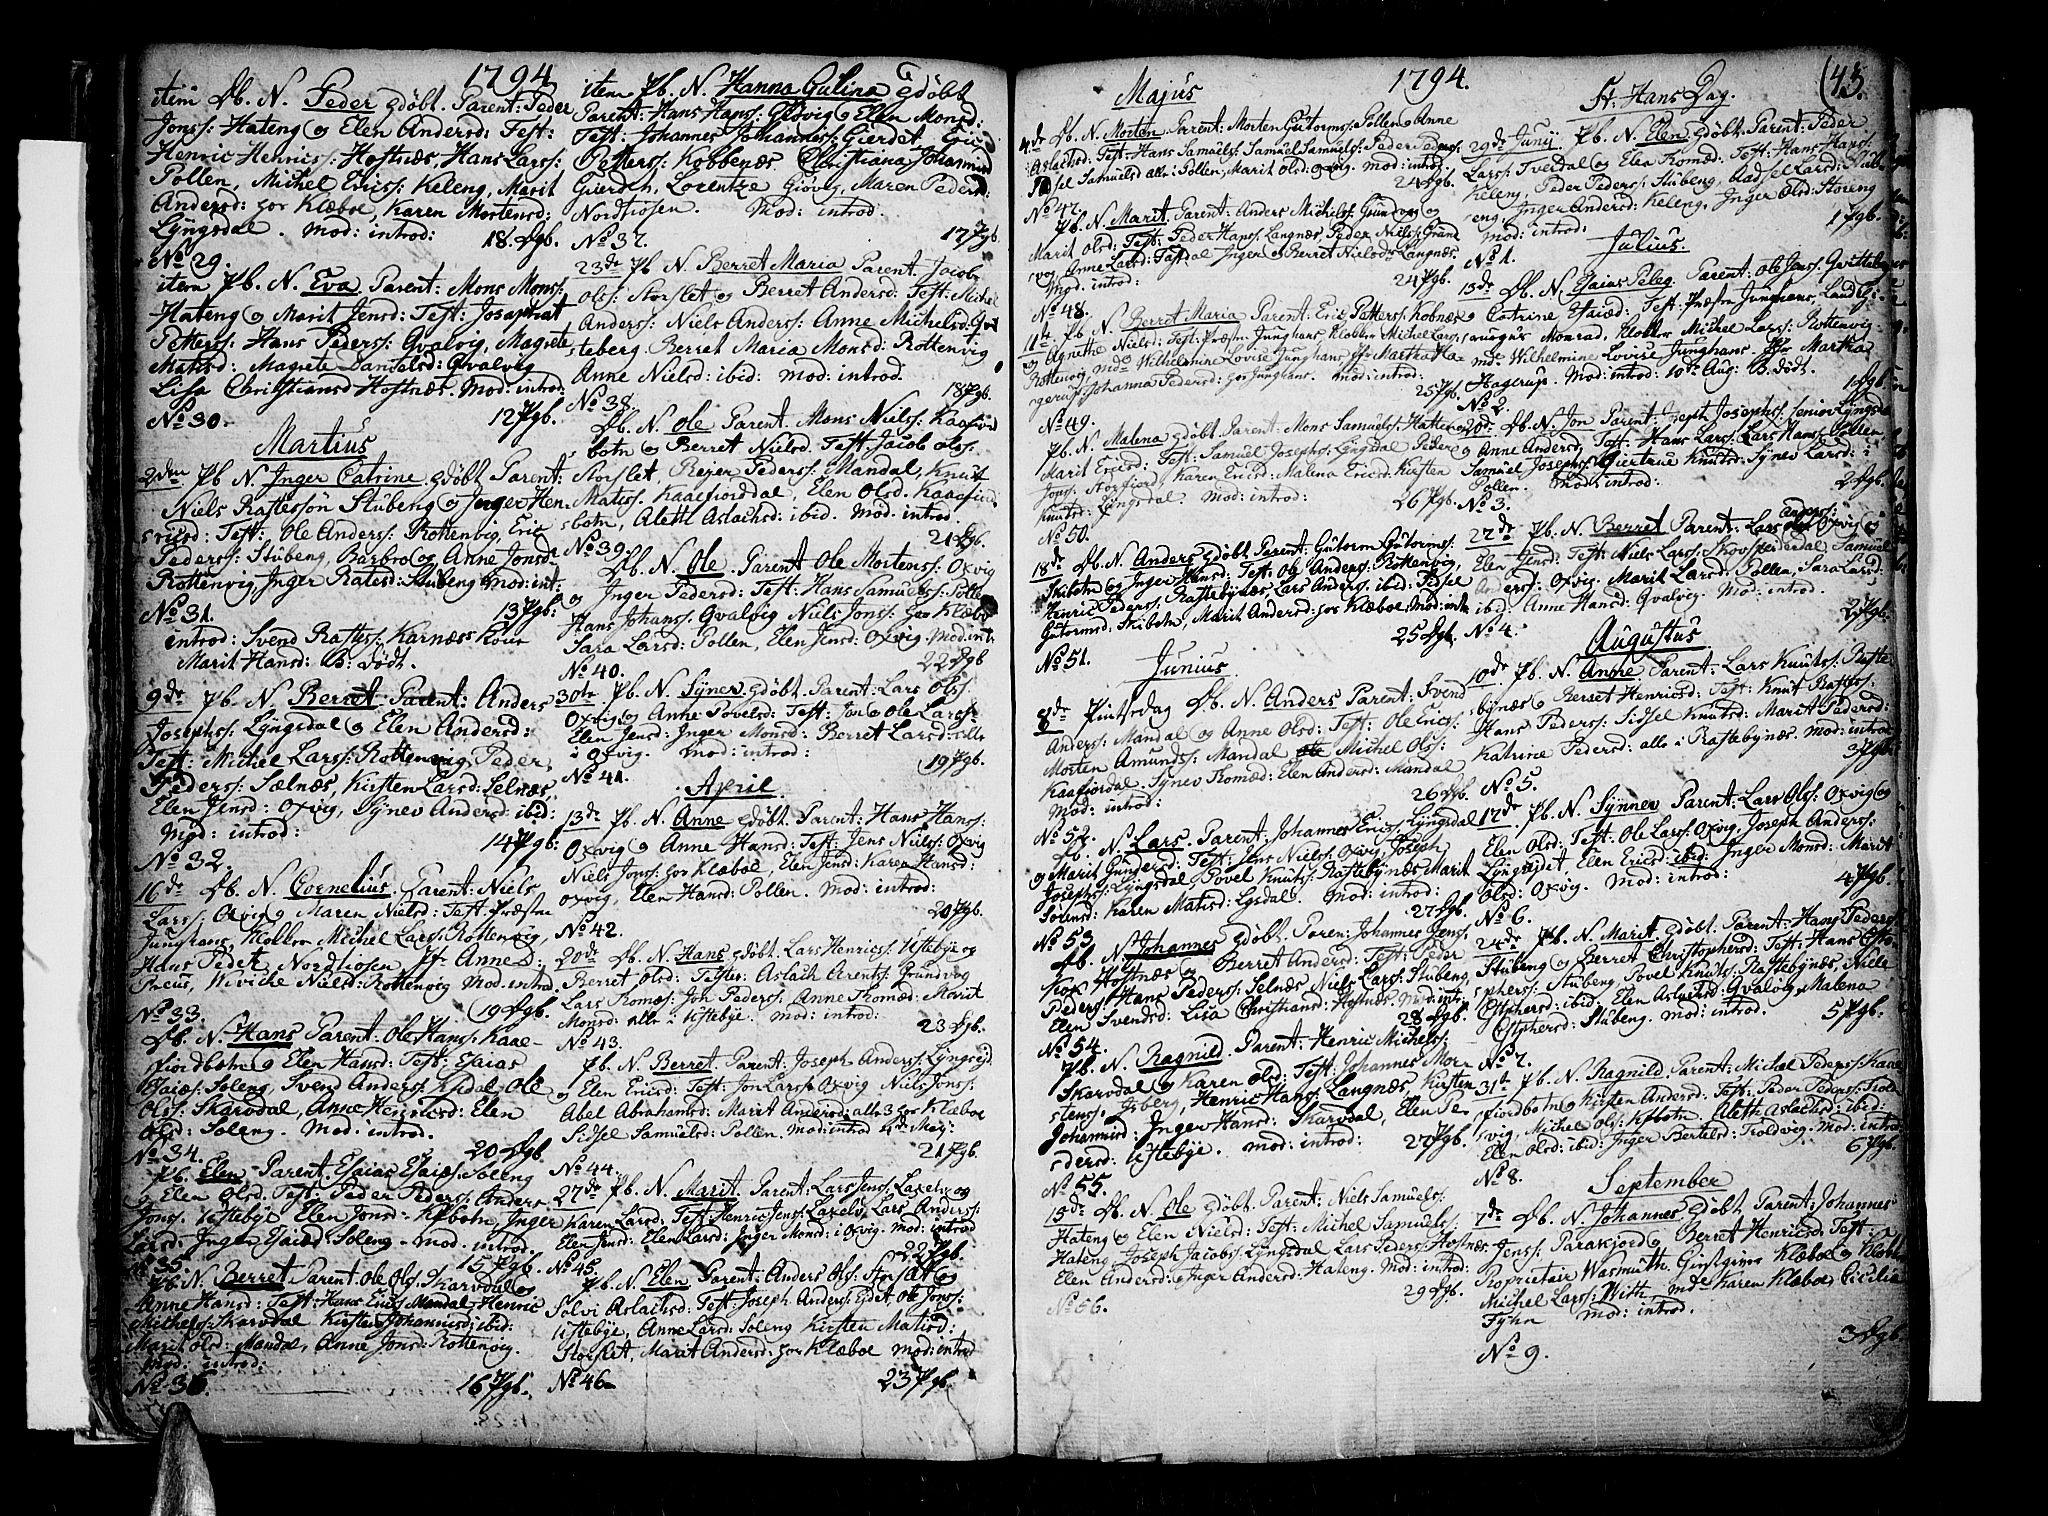 1794
item Db. N. Peder gdöbt. Parent: Peder
Jonss: Hateng og Elen Andersd: Test:
Henric Henrics: Hofnæs Hans Larss:
Pollen, Michel Ericss: Keleng, Marit
Andersd: hos Klæboe, Karen Mortensd:
Lÿngsdal. Mod: introd: 18 Dgb.
No 29.
item Pb. N. Eva Parent: Mons Monss:
Hateng og Marit Jensd: Test: Josaphat
Petterss: Hans Pederss: Qvalvig, Magrete
Matisd: Magrete Danielsd: Qvalvig
Lisa Christiansd Hofnæs. Mod: introd:
No 30. 12 Pgb.
Martius
2den Pb N. Inger Catrine gdöbt Parent:
Niels Raftessön Stubeng og Inger Hen-
ricsd: Test: Ole Anderss: Rottenvig, Eric
Pederss: Stubeng, Barbro og Anne Jonsd:
Rottenvig, Inger Rafesd: Stubeng Mod: int.
No 31. 13 Pgb:
introd: Svend Raftess: Karnæs Kone
Marit Hansd: B: Födt.
9de Pb. N. Berret Parent: Anders
Josephss: Lÿngsdal og Elen Andersd:
Test: Michel Larss: Rottenvig, Peder
Pederss: Sælnæs, Kirsten Larsd: Selnæs,
Elen Jensd: Oxvig, Sÿnev Andersd: ibid:
Mod: introd:
No 32. 14 Pgb:
16de Db. N. Cornelius. Parent: Niels
Larss: Oxvig og Maren Nielsd: Test: Præsten
Junghans, Klokker Michel Larss: Rottenvig,
Hans Peter Nordhosen Jfr Anne D:
Preus, Wiviche Nielsd: Rottenvig Mod: introd.
No 33. 19 Dgb.
Db. N. Hans Parent: Ole Hanss: Kaae-
fiordbotn og Elen Hansd: Test: Esaias
Esaiæs: Soleng, Svend Anderss: Kfdal Ole
Olss: Skarvdal, Anne Henricsd: Elen
Olsd: Soleng. Mod: introd.
No 34. 20 Dgb
Pb. Elen Parent: Esaias Esaiæs: Soleng
og Elen Olsd. Test: Peder Pederss: Anders
Jonss. Uftebÿe Elen Jonsd: Kfbotn, Inger
Larsd: Inger Esaied Soleng. Mod. introd.
No 35. 15 Pgb.
Pb. N. Berret Parent Ole Olss. Skarvdal og
Anne Hansd: Test: Hans Erics Mandal, Henric
Michelss: Skarvdal Kirsten Johannisd: ibid:
Marit Olsd: Mandal, Anne Jonsd: Rottenvig.
Mod: introd:
No 36 16 Pgb.
item Pb. N. Hanna Gulina gdöbt
Parent: Hans Hanss: Giövig og Elen Monsd:
Test: Johannes Johanness: Gierdet, Eric
Petterss: Kobbenæs Christiana Johannisd
Gierdet, Lorentze Giövig, Maren Pedersd:
Nordhosen. Mod: introd.
No 37. 17 Pgb
23de Pb N. Berret Maria Parent. Jacob
Olss: Storslet og Berret Andersd: Test: Michel
Anderss: Niels Anderss: Anne Michelsd: Qvit-
teberg. Berret Maria Monsd: Rottenvig
Anne Nielsd: ibid: Mod: introd.
No 38. 18 Pgb.
Db. N. Ole Parent. Mons Nielss: Kaafiord
botn og Berret Nielsd: Test: Jacob Olss:
Storslet, Reyer Pederss: Mandal, Knut
Matiss: Kaaefiorddal, Elen Olsd. Kaaefiord
botn, Aleth Aslachsd: ibid. Mod. introd.
No 39. 21 Dgb.
Db. N. Ole. Parent Ole Mortenss: Oxvig
og Inger Pedersd: Test: Hans Samuelss: Pollen
Hans Johanss: Qvalvig Niels Jonss: hos Klæboe
Sara Larsd: Pollen, Elen Jensd: Oxvig Mod: int:
No 40. 22 Dgb
30te Pb. N. Sÿnev gdöbt. Parent: Lars Olss.
Oxvig og Anne Povelsd: Test: Jon og Ole Larss:
Elen Jensd: Inger Monsd: Berret Larsd: alle
i Oxvig. Mod: introd:
No 41. 19 Pgb.
April
13de Pb. N. Anne gdöbt. Parent: Hans Hanss:
Oxvig og Anne Hansd: Test: Jens Nielss: Oxvig
Niels Jonss: hos Klæboe, Elen Jensd: Karen Hansd:
Oxvig, Elen Hansd: Pollen. Mod: introd:
No 42. 20 Pgb.
20de Db. N. Hans gdöbt. Lars Henricss: Uftebÿe og
Berret Olsd: Testes: Aslach Arentss: Grundvog
Lars Romos: Jon Pederss: Anne Romæd: Marit
Monsd: alle i Uftebÿe. Mod: introd:
No 43. 23 Dgb.
Pb. N. Berret Parent: Joseph Anderss: Lÿngseid
og Elen Ericsd: Test: Jon Larss: Oxvig Niels Jonss:
Abel Abrahamsd: Marit Andersd: alle 3 hos Klæboe
Sidsel Samuelsd: Pollen. Mod: introd 4de Maÿ:
No 44. 21 Pgb.
27de Pb. N. Marit. Parent: Lars Jenss: Laxelv og
Karen Larsd: Test: Henric Jenss: Laxelv, Lars Anderss:
Elen Jensd: Elen Larsd: Inger Monsd: i Oxvig. Mod: introd
No 45. 22 Pgb.
Pb. N. Elen Parent: Anders Olss. Storslet og
Solvi Aslachsd: Test: Joseph Anderss: Ejdet. Ole Jonss:
Uftebÿe, Anne Larsd: Soleng Kirsten Matisd:
Storslet, Marit Andersd: hos Klæboe Mod: introd
No 46 23 Pgb.
Majus
1794.
4de Db. N. Morten Parent: Morten Gutormss: Pollen og Anne
Aslachsd: Test: Hans Samuelss. Samuel Samuelss: Peder Pederss:
Sidsel Samuelsd alle i Pollen, Marit Olsd: Oxvig. Mod: introd:
No 47. 24 Dgb.
Pb. N. Marit. Parent: Anders Michelss: Grundvog og
Marit Olsd: Test: Peder Hanss. Langnæs Peder Nielss: Grund
vog, Anne Larsd: Tafdal Inger og Berret Nielsdr Langnæs
Mod: introd:
No 48. 24 Pgb.
11te Pb. N. Berret Maria Parent: Eric Petterss: Kobnæs
og Agnethe Nielsd: Test: Præsten Junghans, Klokker Michel Larss
Rottenvig, Mde Wilhelmine Lovise Junghans Jfr Martha Ha-
gerup, Johanna Pedersd: hos Junghans. Mod: introd:
No 49. 25 Pgb.
Pb. N. Malena gdöbt Parent: Mons Samuelss: Hatteng
og Marit Ericsd: Test: Samuel Josephss: Lÿngsdal Peder
Jonss: Storfjord, Karen Ericsd: Malena Ericsd: Kirsten
Knutsd: Lÿngsdal. Mod: introd:
No 50. 26 Pgb.
18de Db. N. Anders gdöbt Parent: Gutorm Gutormss:
Skibotn og Inger Hansd: Test: Ole Anderss: Rottenvig,
Henric Pederss: Raftebÿnæs Lars Anderss: ibid: Sidsel
Gutormsd: Skibotn, Marit Andersd: hos Klæboe, Mod: introd
No 51. 25 Dgb.
Junius
8de Pintsedag Db. N. Anders Parent: Svend
Anderss: Mandal og Anne Olsd: Test: Ole Ericss:
Morten Amundss: Mandal Michel Olss:
Kaafjordal. Sÿnev Romæd: Elen Andersd: Mandal
Mod: introd:
No 52. 26 Db.
Db. N. Lars. Parent: Johannes Ericss: Lÿngsdal
og Marit Gundersd: Test: Jens Nielss: Oxvig Joseph
Josephss: Lÿngsdal, Povel Knutss: Raftebÿnæs Marit
Sörensd: Karen Matisd: Lgsdal. Mod: introd:
No 53. 27 Dgb.
Db. N. Johannes gdöbt. Paren: Johannes Jenss:
Hofnæs og Berret Andersd: Test: Peder
Pederss: Hans Pederss: Selnæs Niels Larss: Stubeng,
Elen Svendsd: Lisa Christiansd: Hofnæs. Mod: introd
No 54. 28 Dgb.
Pb. N. Ragnild. Parent: Henric Michelss:
Skarvdal og Karen Olsd: Test: Johannes Mor-
tenss: Isberg, Henric Hanss: Langnæs Kirsten
Johannisd: Inger Hansd: Skarvdal, Elen Pe-
dersd: Uftebÿe. Mod: introd: 27 Pgb.
No 55.
15de Db. N. Ole gdöbt. Parent: Niels Samuelss:
Hateng og Elen Nielsd: Test: Michel Samuelss:
Hateng, Joseph Jacobss: Lÿngsdal Lars Pederss: Hofnæs
Elen Andersd: Inger Andersd: Hateng. Mod: introd:
No 56. 29 Dgb.
(43.
St. Hans Dag.
29de Junÿ Pb. N. Elen gdöbt. Parent: Peder
Larss: Tverdal og Elen Romæd: Test: Hans Hanss:
Keleng, Peder Pederss: Stubeng, Aadsel Larsd: Stub-
eng, Inger Andersd: Keleng, Inger Olsd: Storeng
Mod: introd: 1 Pgb.
No 1.
Julius.
13de Db. N. Esaias Peleg Parent: Ole Jenss. Qvitteberg
og Catrine Esaied: Test: Præsten Junghans, Land Chi-
rurgus Monrad, Klokker Michel Larss: Rottenvig
Mde Wilhelmine Lovise Junghans Jfr Martha
Hagerup. Mod: introd: 10de Aug: B: födt.
No 2. 1 Dgb
20de Db. N. Jon Parent: Joseph Josephss: Senior Lÿngsdal
og Anne Andersd: Test: Hans Larss: Lars Hanss: Pollen
Samuel Josephss: Giertrue Knutsd: Sÿnev Larsd: i
Pollen. Mod: introd: 2 Dgb.
No 3.
27de Pb. N. Berret Parent: Lars Anderss: Oxvig og
Elen Jensd: Test: Niels Larss: Skovheierdal, Samuel
Anderss: Oxvig. Marit Larsd: Pollen, Sara Larsd:
ibid: Anne Hansd: Qvalvig. Mod: introd.
No 4. 2 Pgb.
Augustus
10de Pb: N. Anne Parent: Lars Knutss: Rafte-
bÿnæs og Berret Henricsd: Test: Knut Raftess:
Hans Pederss: Sidsel Knutsd: Marit Pedersd:
Katrine Pedersd: alle i Raftebÿnæs. Mod: introd
No 5. 3 Pgb:
17de Pb. N. Sÿnnev Parent: Lars Olss: Oxvig og
Elen Olsd: Test: Ole Larss: Oxvig. Joseph Anderss:
Lÿngsejdet, Elen Ericsd: ibid: Inger Monsd: Marit
Olsd: Oxvig. Mod: introd: 4 Pgb.
No 6.
24de Pb. N. Marit gdöbt. Parent: Hans Pederss:
Stubeng og Berret Christophersd: Test: Hans Christo-
phers: Stubeng, Povel Knutss: Raftebÿnæs, Niels
Christphers: ibid. Elen Aslachsd: Qvalvig, Malena
Christphersd: Stubeng. Mod: introd. 5 Pgb.
No 7.
31te Pb. N. Ragnild Parent: Michel Pederss: Kaae
fiordbotn og Kirsten Andersd: Test: Peder Pederss: Trold
vig, Michel Olss: Kfbotn, Aleth Aslachsd: ibid:
Elen Olsd: ibid: Inger Bertelsd: Troldvig. Mod: introd
No 8. 6 Pgb.
September
7de Db. N. Johannes gdöbt Parent: Johannes
Jenss: Parakjord og Berret Henricsd: Test:
Proprietair Wasmuth. Giestgiver Klæboe og Klokk
Michel Larss: With, Mde Karen Klæboe, Cicilia
Fÿhn Mod: introd.
No 9. 3 Dgb.